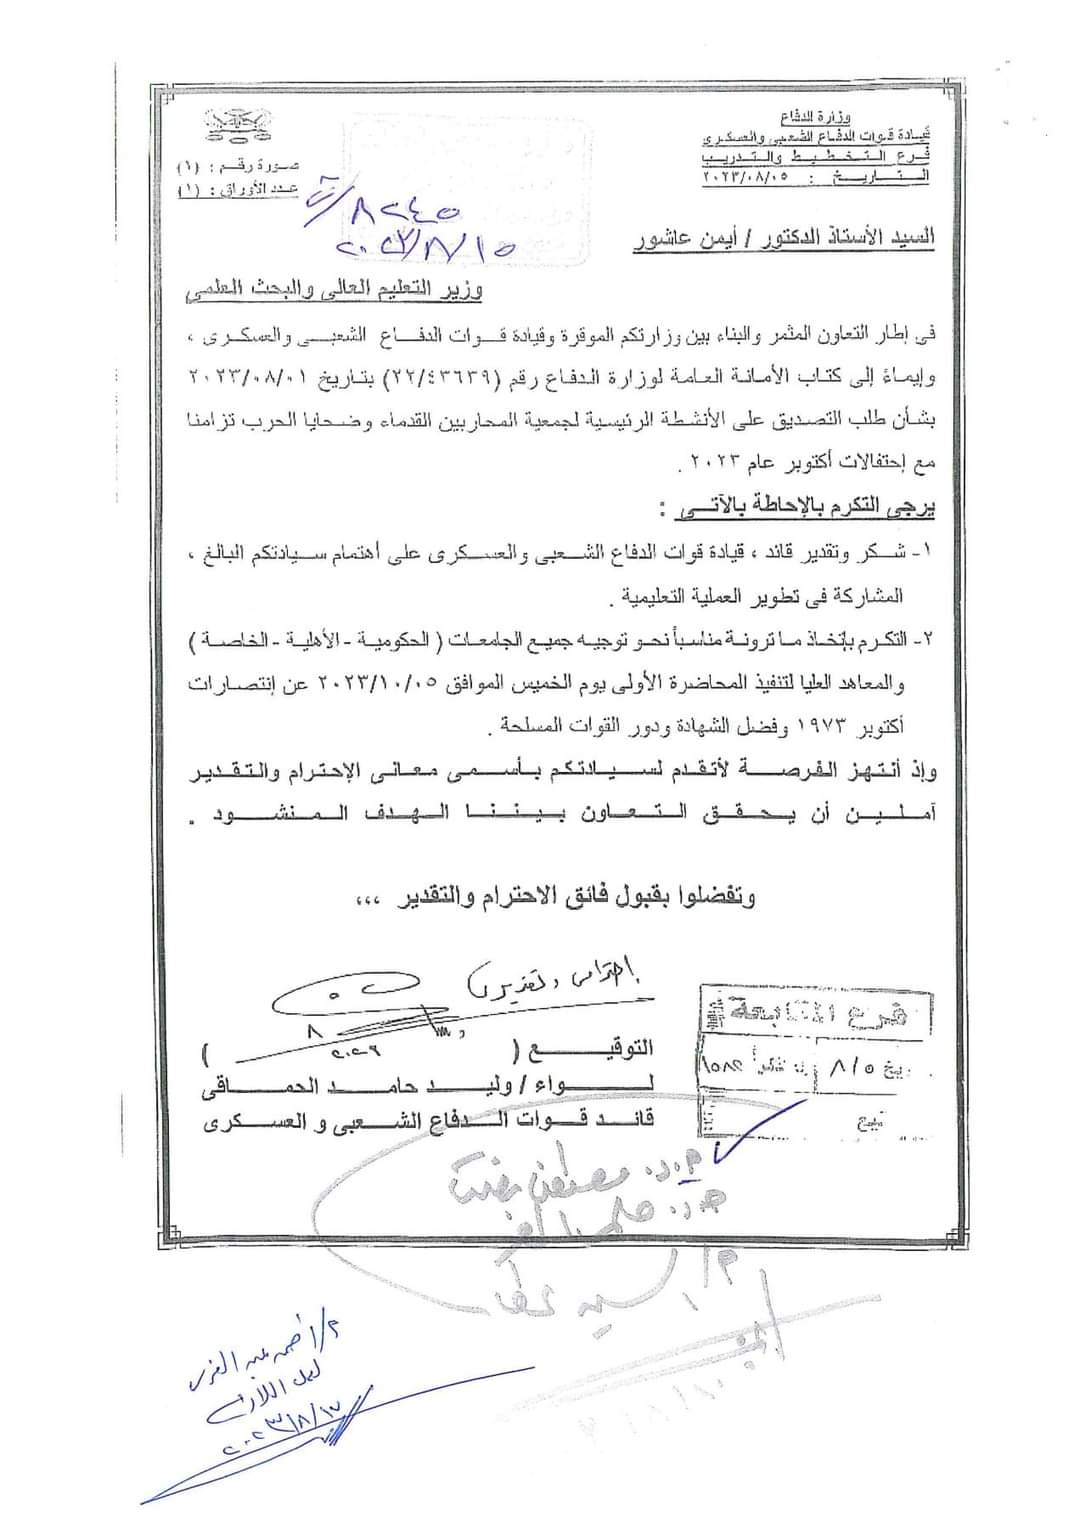 وزارة الدفاع
قيادة قوات الدفاع الشعبى والعسكرى
فرع التخطيط والتدريب
التاريخ : ٢٠٢٣/٠٨/٠٥
صورة رقم : (١)
عدد الأوراق : (١)
٨٢٤٥
٢٠٢٣/٨/١٥
السيد الأستاذ الدكتور / أيمن عاشور
وزير التعليم العالى والبحث العلمى
فى إطار التعاون المثمر والبناء بين وزارتكم الموقرة وقيادة قوات الدفاع الشعبى والعسكرى ،
وإيماءً إلى كتاب الأمانة العامة لوزارة الدفاع رقم (٢٢/٤٣٦٣٩) بتاريخ ٢٠٢٣/٠٨/٠١
بشأن طلب التصديق على الأنشطة الرئيسية لجمعية المحاربين القدماء وضحايا الحرب تزامنا
مع إحتفالات أكتوبر عام ٢٠٢٣ .
يرجى التكرم بالإحاطة بالآتى :
١- شكر وتقدير قائد ، قيادة قوات الدفاع الشعبى والعسكرى على أهتمام سيادتكم البالغ ،
المشاركة فى تطوير العملية التعليمية .
٢- التكرم بإتخاذ ما ترونة مناسباً نحو توجيه جميع الجامعات ( الحكومية - الأهلية - الخاصة )
والمعاهد العليا لتنفيذ المحاضرة الأولى يوم الخميس الموافق ٢٠٢٣/١٠/٠٥ عن إنتصارات
أكتوبر ١٩٧٣ وفضل الشهادة ودور القوات المسلحة .
وإذ أنتهز الفرصة لأتقدم لسيادتكم بأسمى معانى الإحترام والتقدير
آملين أن يحقق التعاون بيننا الهدف المنشود .
وتفضلوا بقبول فائق الاحترام والتقدير ،،،
إحترامى وتقديرى
التوقيع ( )
لواء / وليد حامد الحماقى
قائد قوات الدفاع الشعبى و العسكرى
فرع المتابعة
٨/٥
م.د. مصطفى رفعت
م/ السيد عطا
٢٠٢٣/٨/١٧